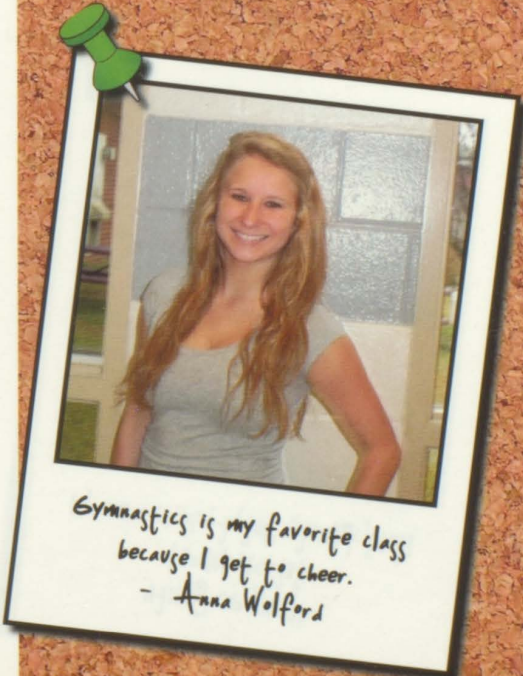 Gymnastics is my favorite class
because I get to cheer.
- Anna Wolford